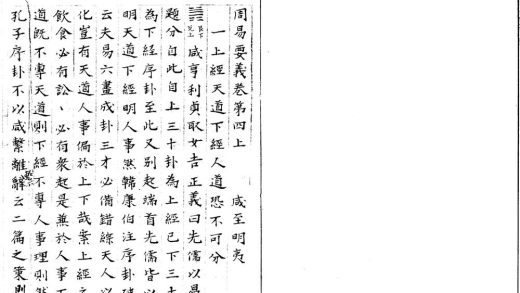 周易要義卷第四上　咸至明夷
一上經天道下經人道恐不可分
䷞艮下兌上咸亨利貞取女吉正義曰先儒以易
題分自此自上三十卦為上經已下三十
為下經序卦至此又別起端首先儒皆以
明天道下經明人事然韓康伯注序卦破
云夫易六畫成卦三才必備錯綜天人以
化豈有天道人事偏於上下哉案上經之
飲食必有訟、必有衆起是兼於人事不
道旣不專天道則下經不專人事理則然
孔子序卦不以咸繫離繫辭云二篇之策則